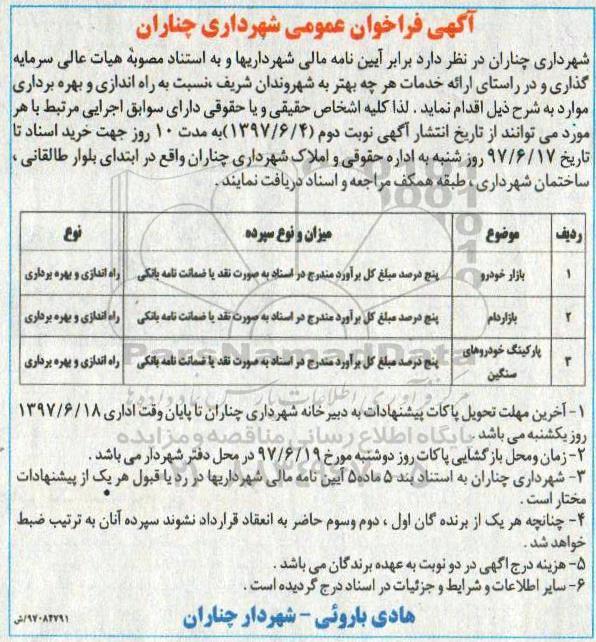 آگهی فراخوان عمومی شهرداری چناران
شهرداری چناران در نظر دارد برابر آیین نامه مالی شهرداریها و به استناد مصوبهٔ هیات عالی سرمایه
گذاری و در راستای ارائه خدمات هر چه بهتر به شهروندان شریف ،نسبت به راه اندازی و بهره برداری
موارد به شرح ذیل اقدام نماید . لذا کلیه اشخاص حقیقی و یا حقوقی دارای سوابق اجرایی مرتبط با هر
مورد می توانند از تاریخ انتشار آگهی نوبت دوم (۱۳۹۷/۶/۴)به مدت ۱۰ روز جهت خرید اسناد تا
تاریخ ۹۷/۶/۱۷ روز شنبه به اداره حقوقی و املاک شهرداری چناران واقع در ابتدای بلوار طالقانی ،
ساختمان شهرداری ، طبقه همکف مراجعه و اسناد دریافت نمایند .
ردیف موضوع میزان و نوع سپرده نوع
۱ بازار خودرو پنج درصد مبلغ کل برآورد مندرج در اسناد به صورت نقد یا ضمانت نامه بانکی راه اندازی و بهره برداری
۲ بازاردام پنج درصد مبلغ کل برآورد مندرج در اسناد به صورت نقد یا ضمانت نامه بانکی راه اندازی و بهره برداری
۳ پارکینگ خودروهای سنگین پنج درصد مبلغ کل برآورد مندرج در اسناد به صورت نقد یا ضمانت نامه بانکی راه اندازی و بهره برداری
ParsNamadData
پایگاه اطلاع رسانی مناقصه و مزایده
۱- آخرین مهلت تحویل پاکات پیشنهادات به دبیرخانه شهرداری چناران تا پایان وقت اداری ۱۳۹۷/۶/۱۸
روز یکشنبه می باشد .
۲- زمان ومحل بازگشایی پاکات روز دوشنبه مورخ ۹۷/۶/۱۹ در محل دفتر شهردار می باشد .
۳- شهرداری چناران به استناد بند ۵ ماده۵ آیین نامه مالی شهرداریها در رد یا قبول هر یک از پیشنهادات
مختار است .
۴- چنانچه هر یک از برنده گان اول ، دوم وسوم حاضر به انعقاد قرارداد نشوند سپرده آنان به ترتیب ضبط
خواهد شد .
۵- هزینه درج اگهی در دو نوبت به عهده برندگان می باشد .
۶- سایر اطلاعات و شرایط و جزئیات در اسناد درج گردیده است .
هادی باروئی - شهردار چناران
۹۷۰۸۴۷۹۱/ش